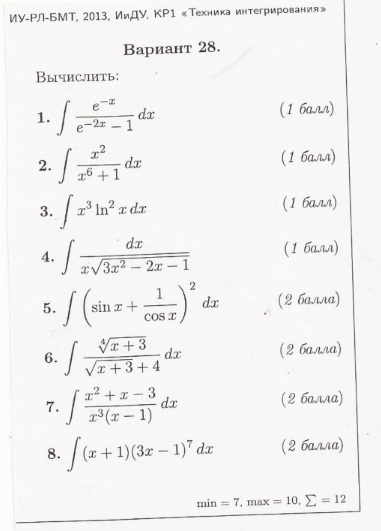 ИУ-РЛ-БМТ, 2013, ИиДУ, КР1 «Техника интегрирования»
Вариант 28.
Вычислить:
1. ∫ e^{-x} / (e^{-2x} − 1) dx (1 балл)
2. ∫ x² / (x⁶ + 1) dx (1 балл)
3. ∫ x³ ln² x dx (1 балл)
4. ∫ dx / (x√(3x² − 2x − 1)) (1 балл)
5. ∫ (sin x + 1/cos x)² dx (2 балла)
6. ∫ ∜(x + 3) / (√(x + 3) + 4) dx (2 балла)
7. ∫ (x² + x − 3) / (x³(x − 1)) dx (2 балла)
8. ∫ (x + 1)(3x − 1)⁷ dx (2 балла)
min = 7, max = 10, ∑ = 12